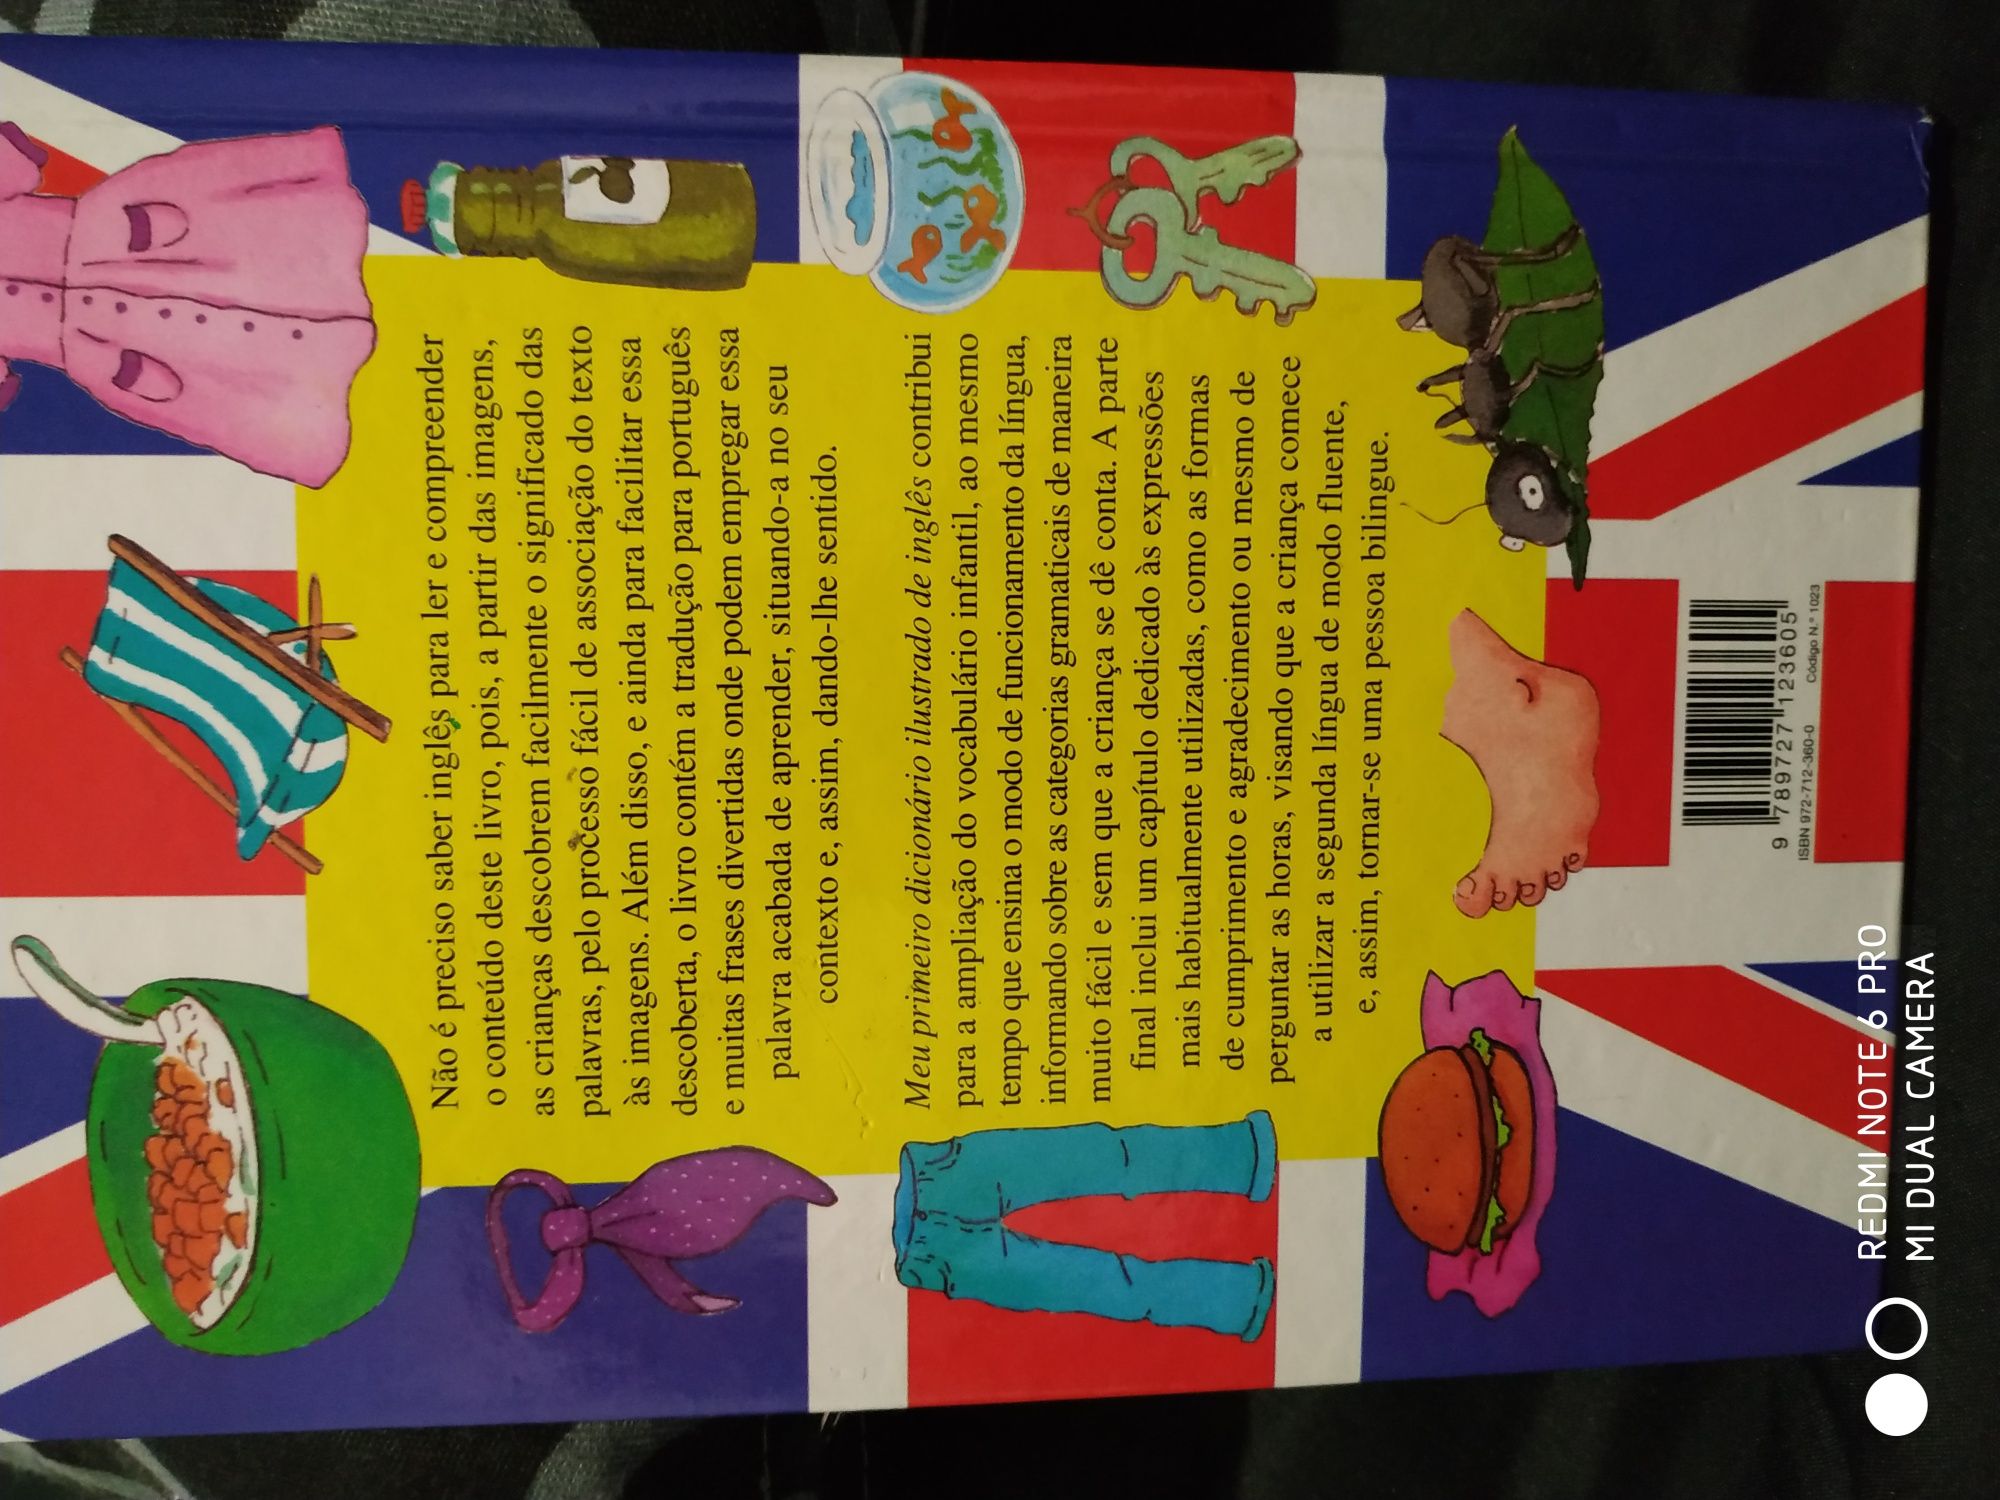 Não é preciso saber inglês para ler e compreender
o conteúdo deste livro, pois, a partir das imagens,
as crianças descobrem facilmente o significado das
palavras, pelo processo fácil de associação do texto
às imagens. Além disso, e ainda para facilitar essa
descoberta, o livro contém a tradução para português
e muitas frases divertidas onde podem empregar essa
palavra acabada de aprender, situando-a no seu
contexto e, assim, dando-lhe sentido.
Meu primeiro dicionário ilustrado de inglês contribui
para a ampliação do vocabulário infantil, ao mesmo
tempo que ensina o modo de funcionamento da língua,
informando sobre as categorias gramaticais de maneira
muito fácil e sem que a criança se dê conta. A parte
final inclui um capítulo dedicado às expressões
mais habitualmente utilizadas, como as formas
de cumprimento e agradecimento ou mesmo de
perguntar as horas, visando que a criança comece
a utilizar a segunda língua de modo fluente,
e, assim, tornar-se uma pessoa bilingue.
9 789727 123605
ISBN 972-712-360-0 Código N.º 1023
REDMI NOTE 6 PRO
MI DUAL CAMERA